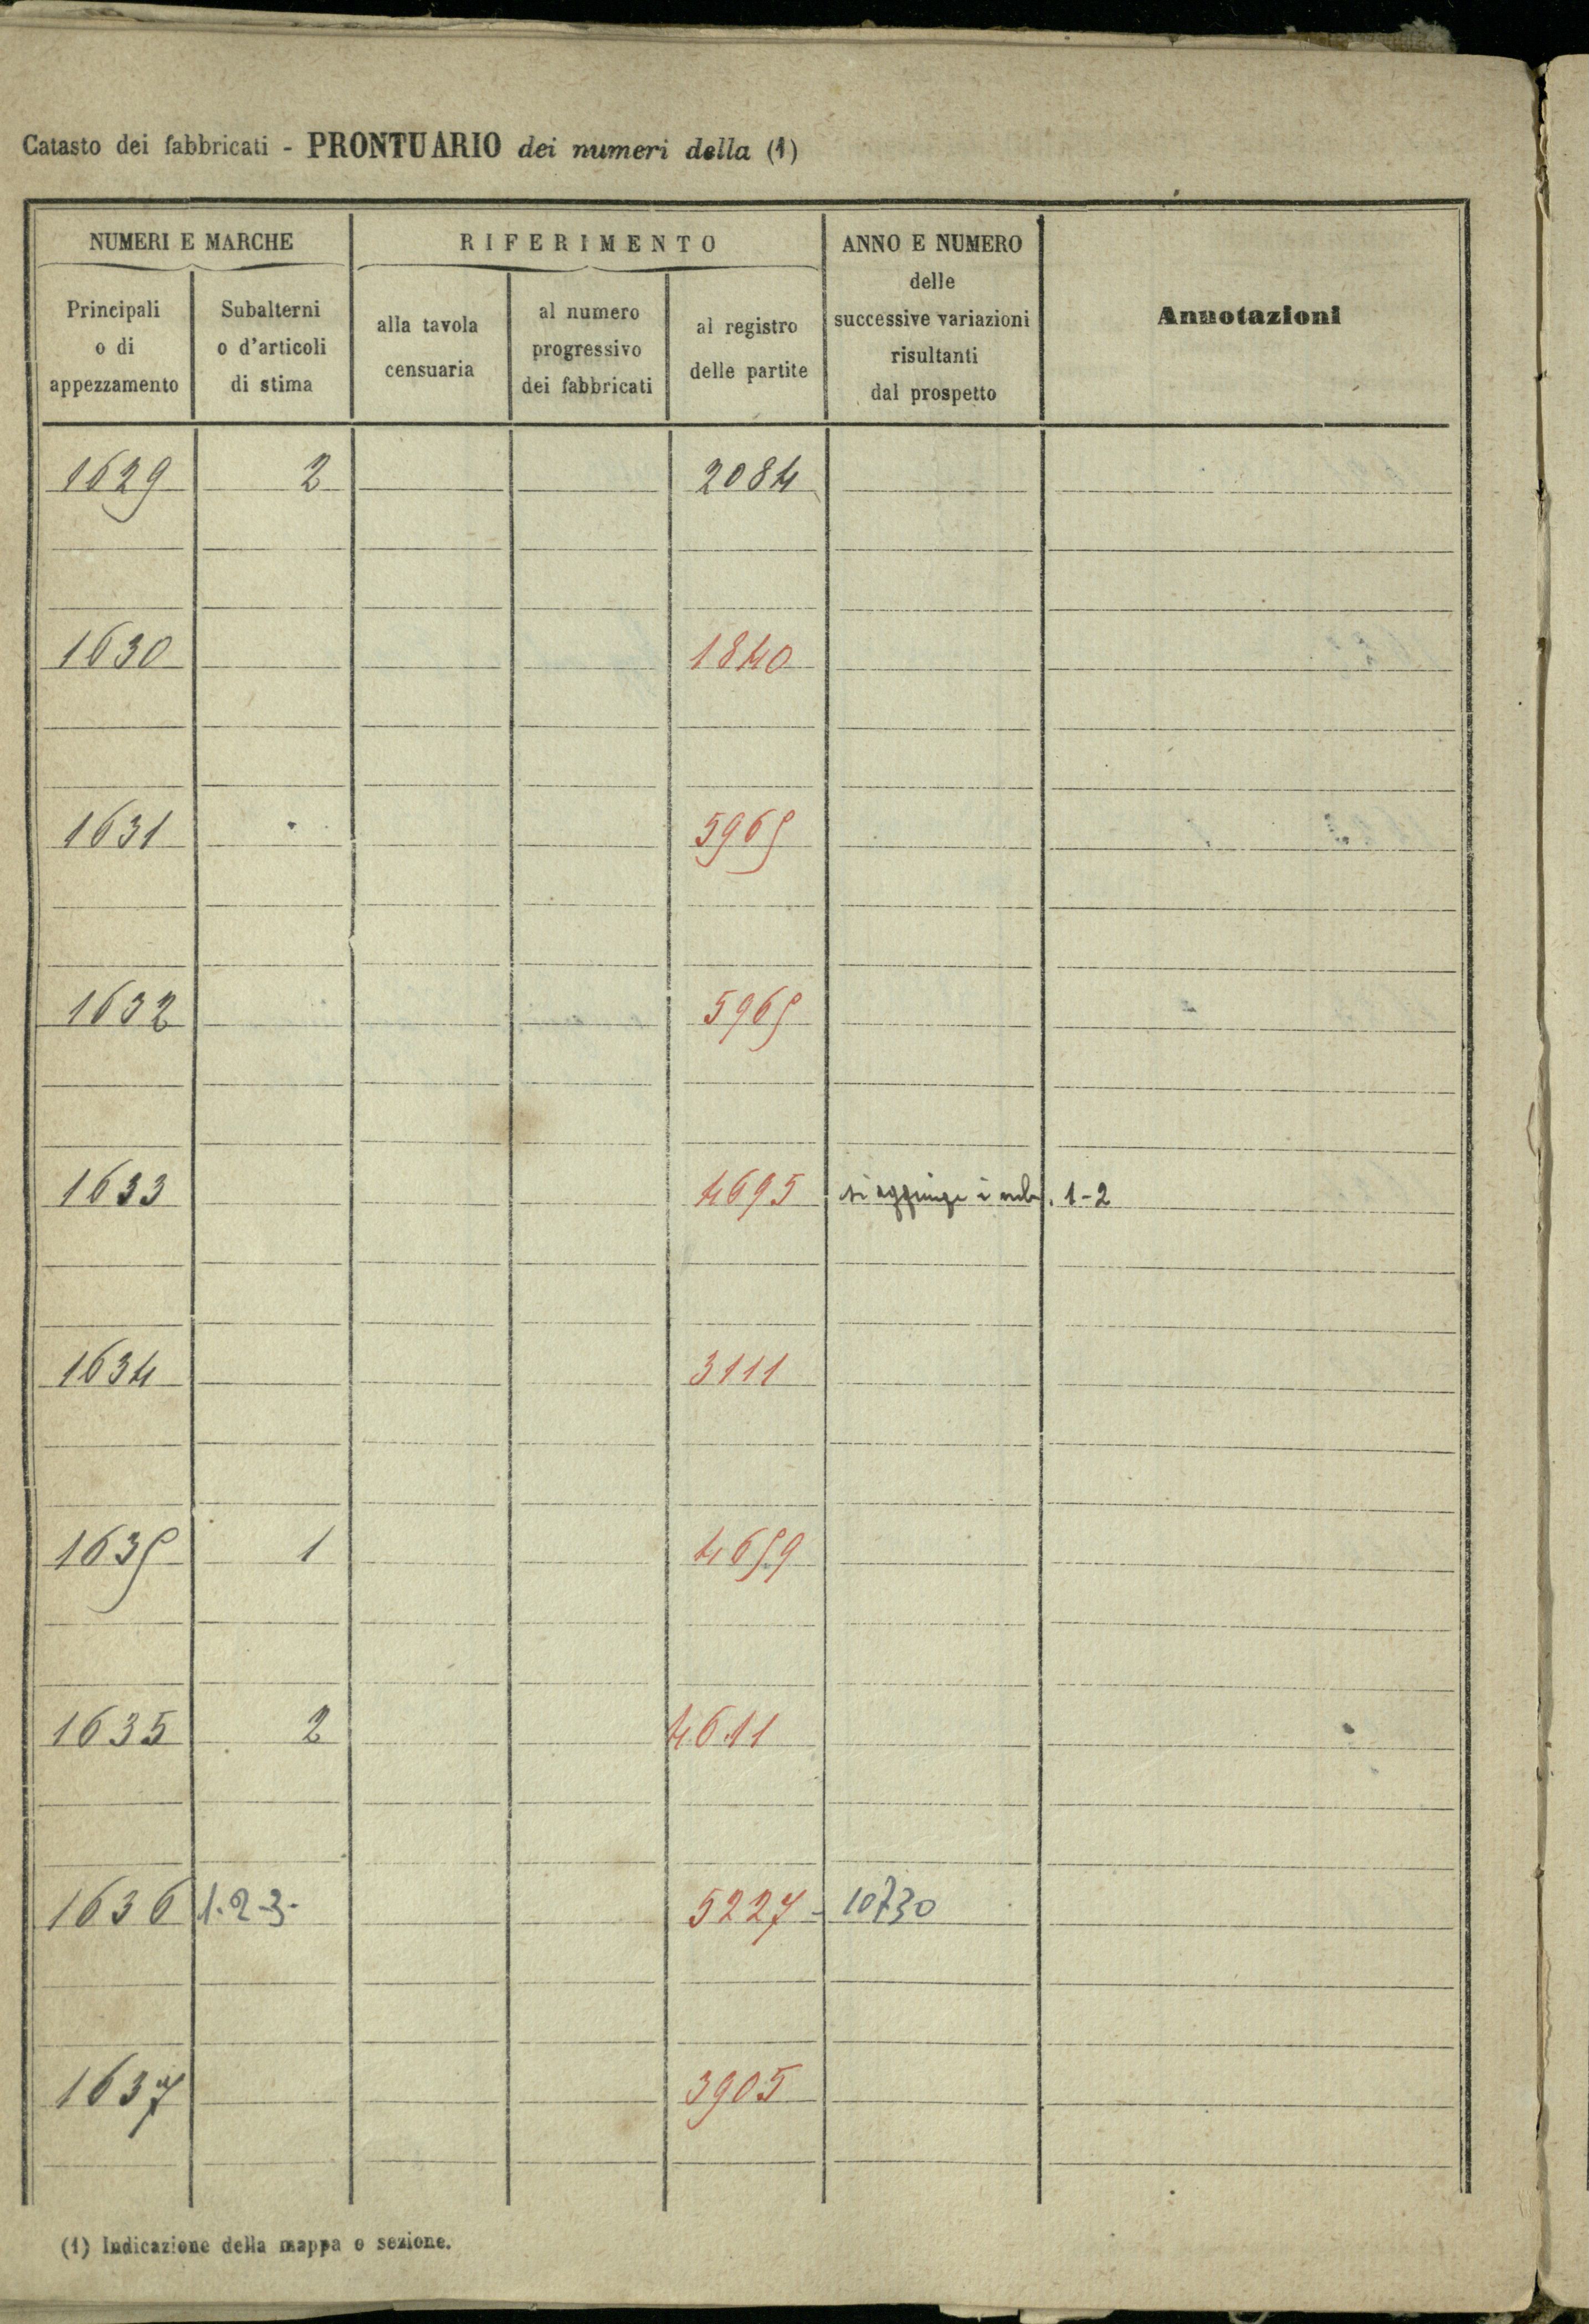 Catasto dei fabbricati - PRONTUARIO dei numeri della (1)
NUMERI E MARCHE
RIFERIMENTO
ANNO E NUMERO
delle
successive variazioni
risultanti
dal prospetto
Annotazioni
Principali
o di
appezzamento
Subalterni
o d'articoli
di stima
alla tavola
censuaria
al numero
progressivo
dei fabbricati
al registro
delle partite
1629 2 2084
1630 1840
1631 5965
1632 5965
1633 4695 si aggiunge i sub. 1-2
1634 3111
1635 1 4659
1635 2 4611
1636 1.2-3- 5227- 10730
1637 3905
(1) Indicazione della mappa o sezione.